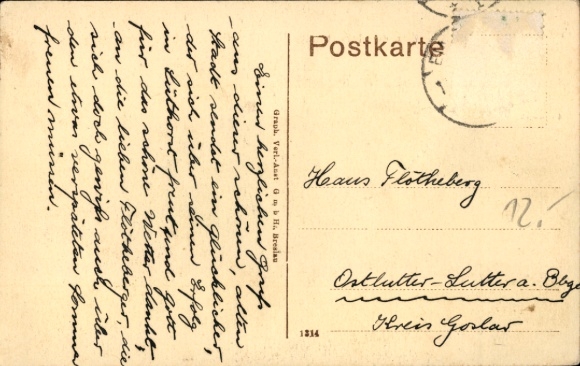 Einen herzlichen Gruß
aus dieser schönen, alten
Stadt sendet ein glücklicher,
der sich über sein Erfolg
in Lüthorst freut und Gott
für das schöne Wetter dankt,
an die lieben Flötheberger, die
sich doch gewiß auch über
den etwas verspäteten Sommer
freuen müssen.
Graph. Verl.-Anst G m b H., Breslau
1314
Postkarte
Hans Flötheberg
12.-
Ostlutter-Lutter a. Bbge
Kreis Goslar